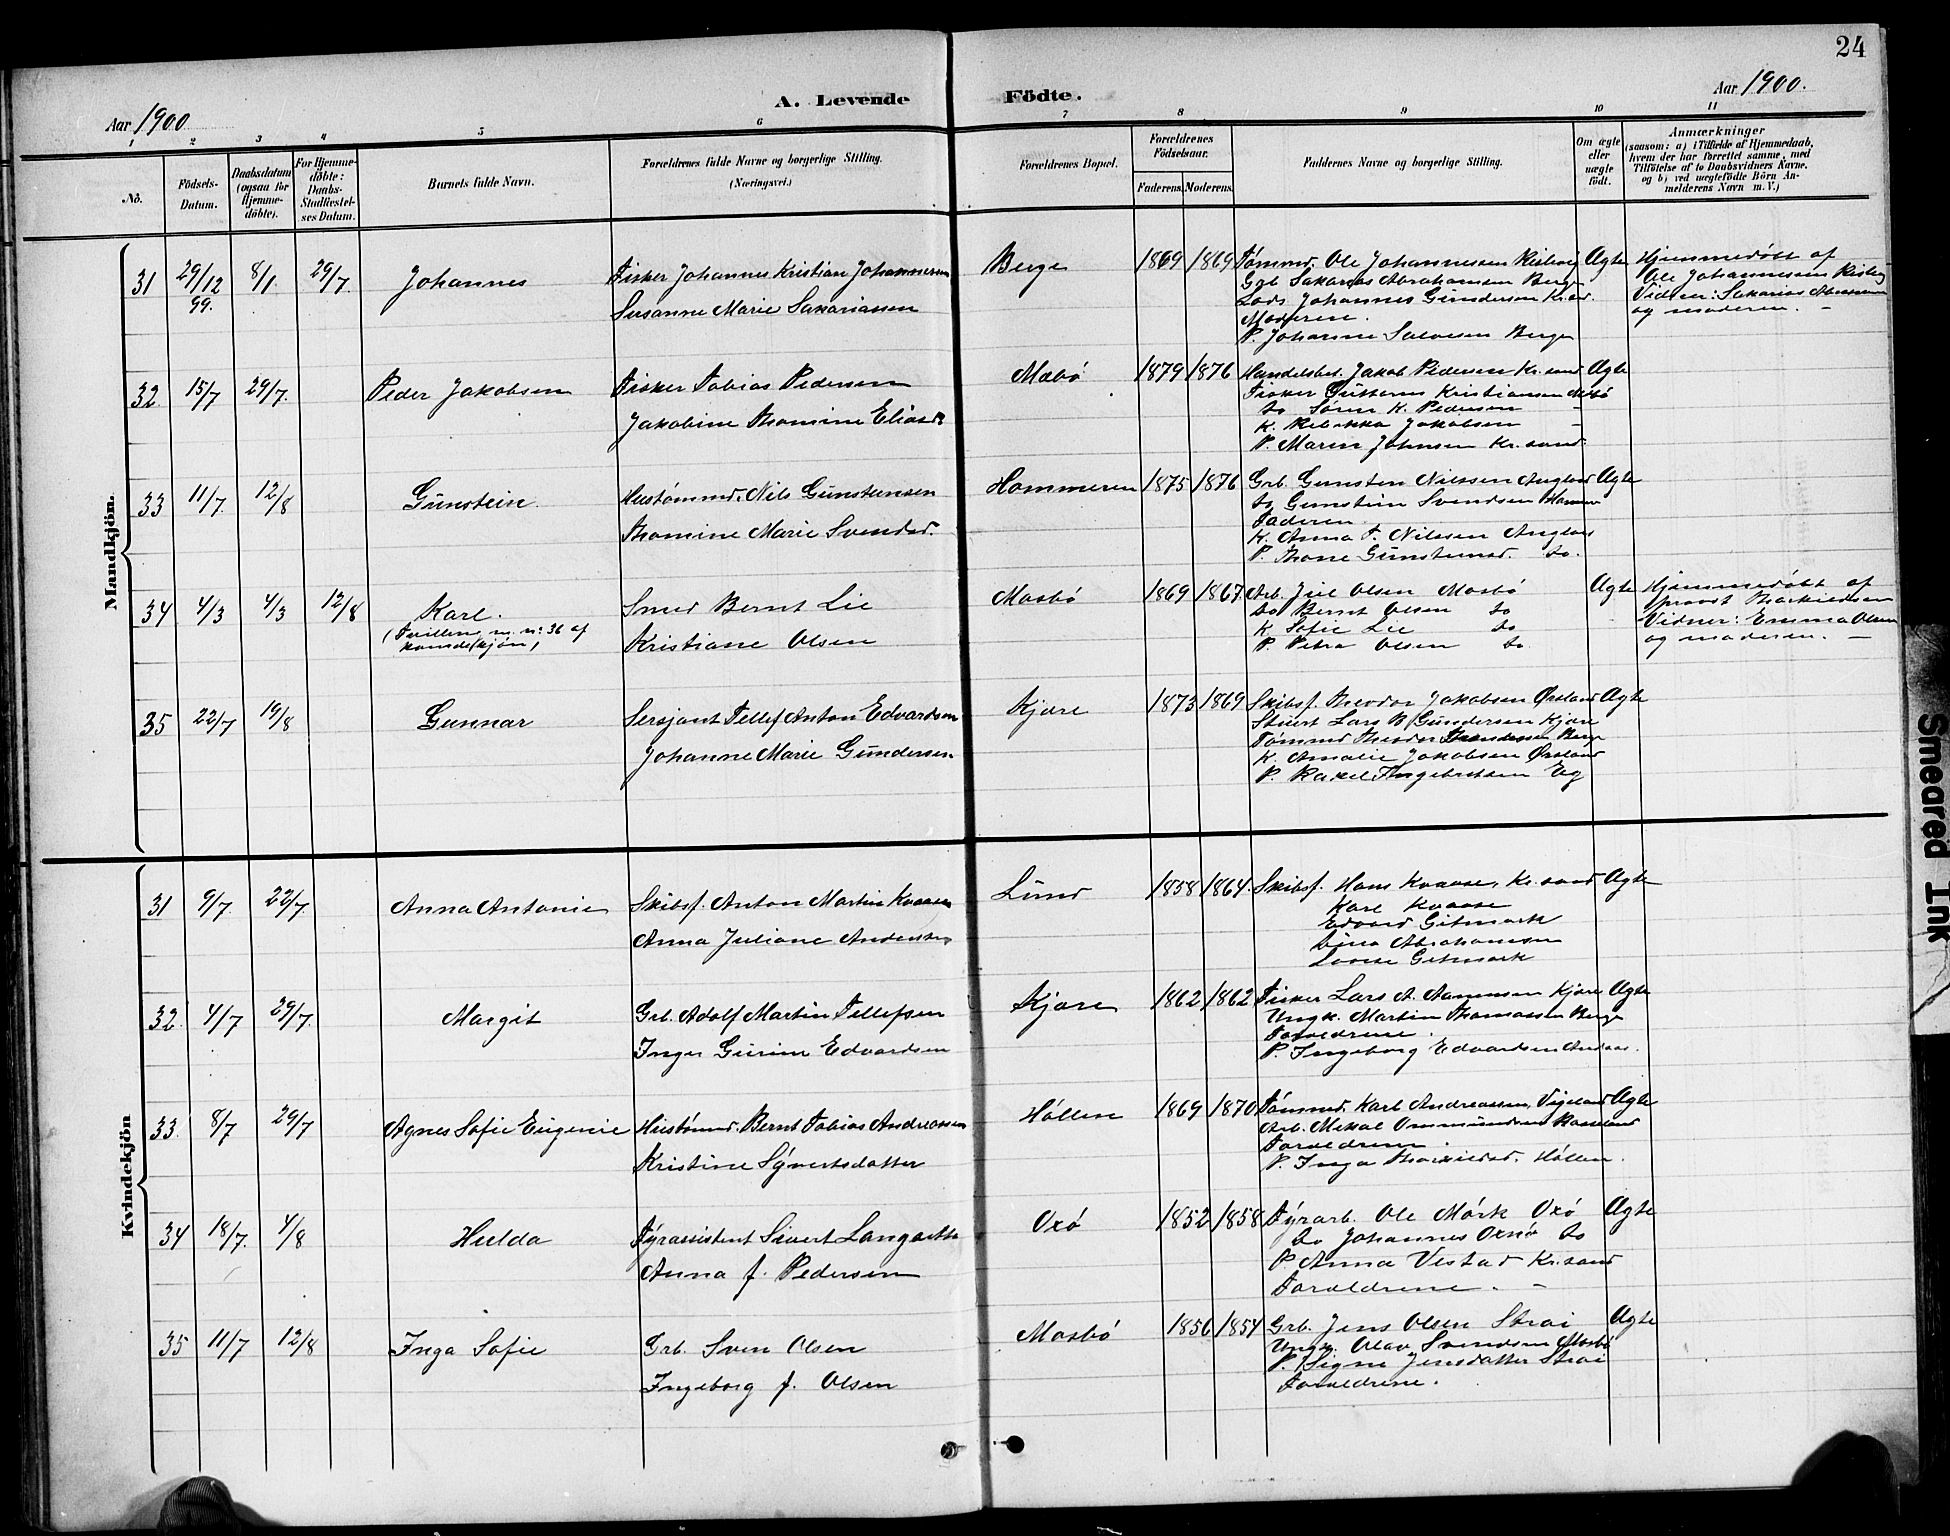 24
Aar 1900
A. Levende
Födte.
Aar 1900.
1 2 3 4 5 6 7 8 9 10 11
No.
Födsels-
Datum.
Daabsdatum
(ogsaa for
Hjemme-
döbte).
For Hjemme-
döbte:
Daabs-
Stadfæstel-
ses Datum.
Barnets fulde Navn.
Forældrenes fulde Navne og borgerlige Stilling.
(Næringsvei.)
Forældrenes Bopæl.
Forældrenes
Födselsaar.
Faderens. Moderens.
Faddernes Navne og borgerlige Stilling.
Om ægte
eller
uægte
födt.
Anmærkninger
(saasom: a) i Tilfælde af Hjemmedaab,
hvem der har forrettet samme, med
Tilföielse af to Daabsvidners Navne,
og b) ved uægtefödte Börn An-
melderens Navn m. V.)
Mandkjön.
31 29/12 99. 8/1 29/7 Johannes
Fisker Johannes Kristian Johannesen
Susanne Marie Sakariassen
Berge 1869 1869
Tømmd. Ole Johannessen Risberg
Grb Sakarias Abrahamsen Berge
Lods Johannes Gundersen Kr.sand.
Moderen.
P. Johanne Salvesen Berge
Ægte
Hjemmedøbt af
Ole Johannessen Risberg
Vidner: Sakarias Abrahamsen
og moderen. —
32 15/7 29/7. Peder Jakobsen
Fisker Tobias Pedersen
Jakobine Thomine Eliasd.
Mæbø 1879 1876
Handelsbet. Jakob Pedersen Kr.sand
Fisker Guttorm Kristiansen Mæbø
do Søren K. Pedersen —
K. Rebekka Jakobsen —
P. Maren Johnsen Kr.sand.
Ægte
33 11/7. 12/8 Gunstein.
Hustømmd. Nils Gunstensen
Thomine Marie Svendsd.
Hommeren 1875 1876
Grb. Gunsten Nilssen Augland
do Gunstein Svendsen Hommer
Faderen.
K. Anna T. Nilssen Augland
P. Thone Gunstensd. do.
Ægte
34 4/3 4/3 12/8 Karl.
(Tvilling m. n: 36 af
kvindekjøn)
Smed Bernt Lie
Kristiane Olsen
Mosbø 1869 1867.
Arb. Juel Olsen Mosbø
do Bernt Olsen do
K. Sofie Lie do
P. Petra Olsen do.
Ægte
Hjemmedøbt af
provst Thorkildsen
Vidner: Emma Olsen
og moderen. —
35 22/7 19/8 Gunnar
Sersjant Tellef Anton Edvardsen
Johanne Marie Gundersen
Kjære 1873 1869
Skibsf. Theodor Jakobsen Øvland
Stuert Lars B. Gundersen Kjære
Tømmd Theodor Berge
K. Amalie Jakobsen Øvland
P. Rakel Ingebretsen Eg
Ægte
Kvindekjön
31 9/7. 22/7. Anna Antonie
Skibsf. Anton Martin Kvaase
Anna Juliane Andersen
Lund 1858 1864.
Skibsf. Hans Kvaase, Kr.sand
Karl Kvaase
Edvard Gitmark
Lina Abrahamsen
Lovise Gitmark
Ægte
32. 4/7 29/7. Margit
Grb. Adolf Martin Tellefsen
Inger Gurine Edvardsen
Kjære 1862 1862
Fisker Lars A. Aanensen Kjære
Ungk. Martin Thomassen Berge
Forældrene.
P. Ingeborg Edvardsen Andaas.
Ægte
33. 8/7 29/7 Agnes Sofie Eugenie
Hustømmd. Bernt Tobias Andreassen
Kristine Syvertsdatter
Høllen 1869 1870
Tømmd. Karl Andreassen, Vigeland
Arb. Mikal Ommundsen Rosseland
Forældrene.
P. Inga Thorkildsd. Høllen.
Ægte
34 18/7. 4/8 Hulda
Fyrassistent Sivert Langaether
Anna f. Pedersen
Oxø 1852 1858
Fyrarb. Ole Mørk Oxø
do Johannes Oxnø do
P. Anna Vestad Kr.sand
Forældrene. —
Ægte
35 11/7 12/8 Inga Sofie
Grb. Sven Olsen
Ingeborg f. Olsen
Mosbø 1856 1854
Grb. Jens Olsen Strai
Ungk. Olav Svendsen Mosbø
P. Signe Jensdatter Strai
Forældrene.
Ægte
Smeared Ink